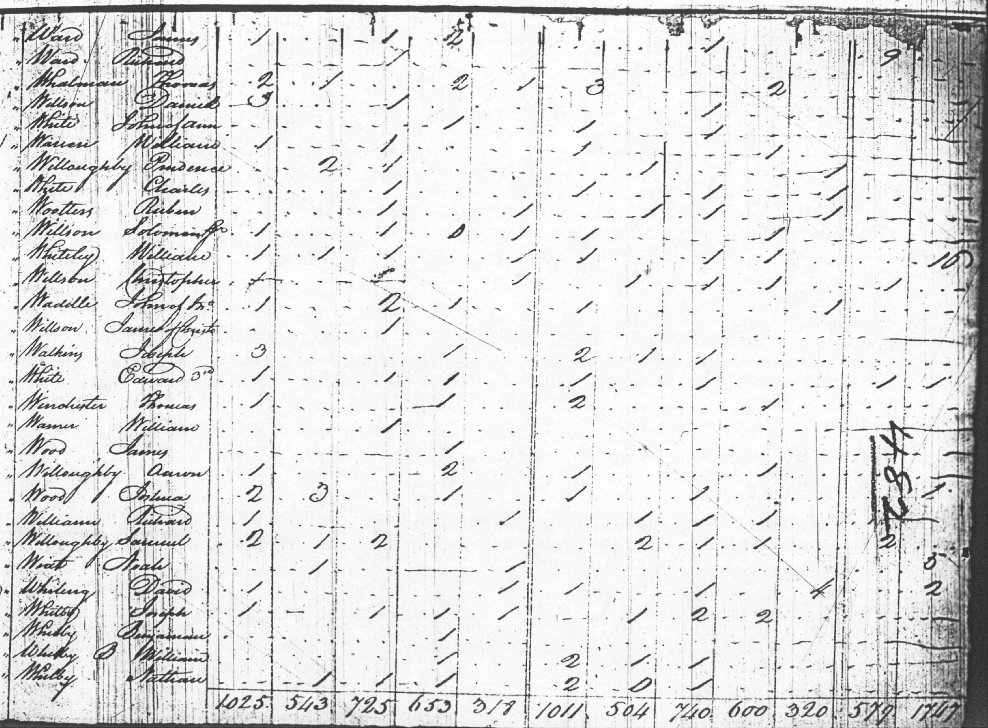 " Ward James 1 1 2 1
" Ward Richard 1 9
" Whalman Thomas 2 1 2 1 3 2
" Willson Daniel 3 1 1
" White John of Ann 1 1 1
" Warren William 1 1 1 1
" Willoughby Prudence 2 1 1 1
" White Charles 1 1 1 1
" Wootters Ruben 1 1 1 1 1
" Willson Solomon Jr 1 1 0 1 1 1
" Whiteley William 1 1 1 1 1 1 1 1
" Willson Christopher 1 1 1 1 1
" Waddle John of 1 2 1 1 1
" Willson James of 1
" Watkins Joseph 3 1 2 1 1
" White Edward 3rd 1 1 1 1 1 1 1
" Winchester Thomas 1 1 2 1
" Warner William 1
" Wood James 1
" Willoughby Aaron 1 2 1 1
" Wood Joshua 2 3 1 1 1 1
" William Richard 1 1 1 1 1
" Willoughby Samuel 2 1 2 2 1 1 2
" Noah 1 1 5
" Whiting David 1 1 1 1 2
" Whitby Joseph 1 1 1 1 1 2 2
" Whitby Benjamin 1
" Whitby B William 1 2 1 1
" Whitby Nathan 1 1 1 2 0 1
1025 543 725 653 318 1011 504 740 600 320 579 1747
482